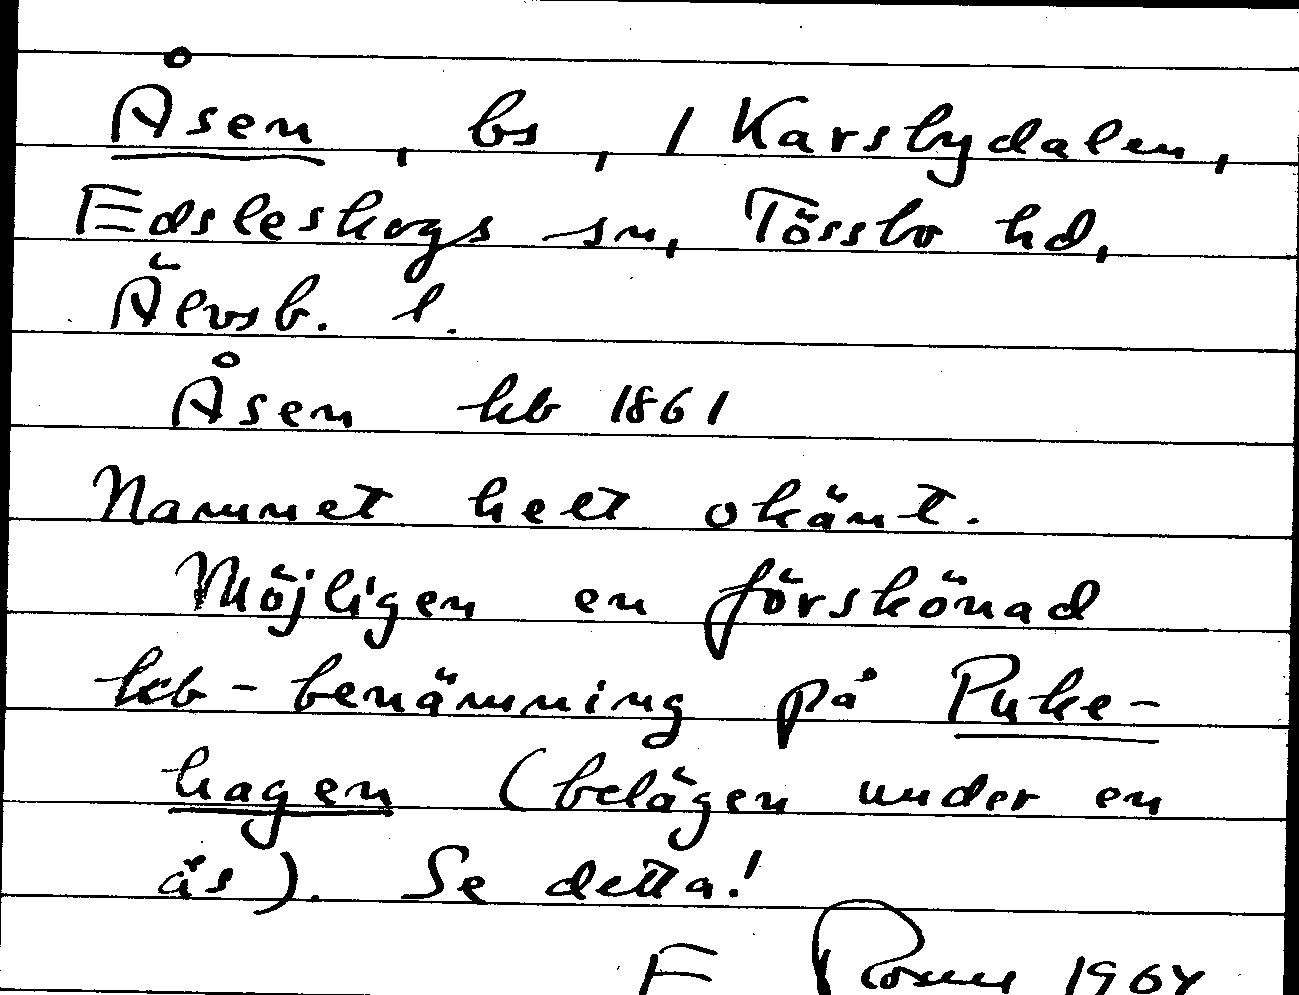 Åsen, bs, / Karsbydalen,
Edsleskogs sn, Tössbo hd,
Älvsb. l.
Åsen kb 1861
Namnet helt okänt.
Möjligen en förskönad
kb-benämning på Puke-
hagen (belägen under en
ås). Se detta!
E 1964